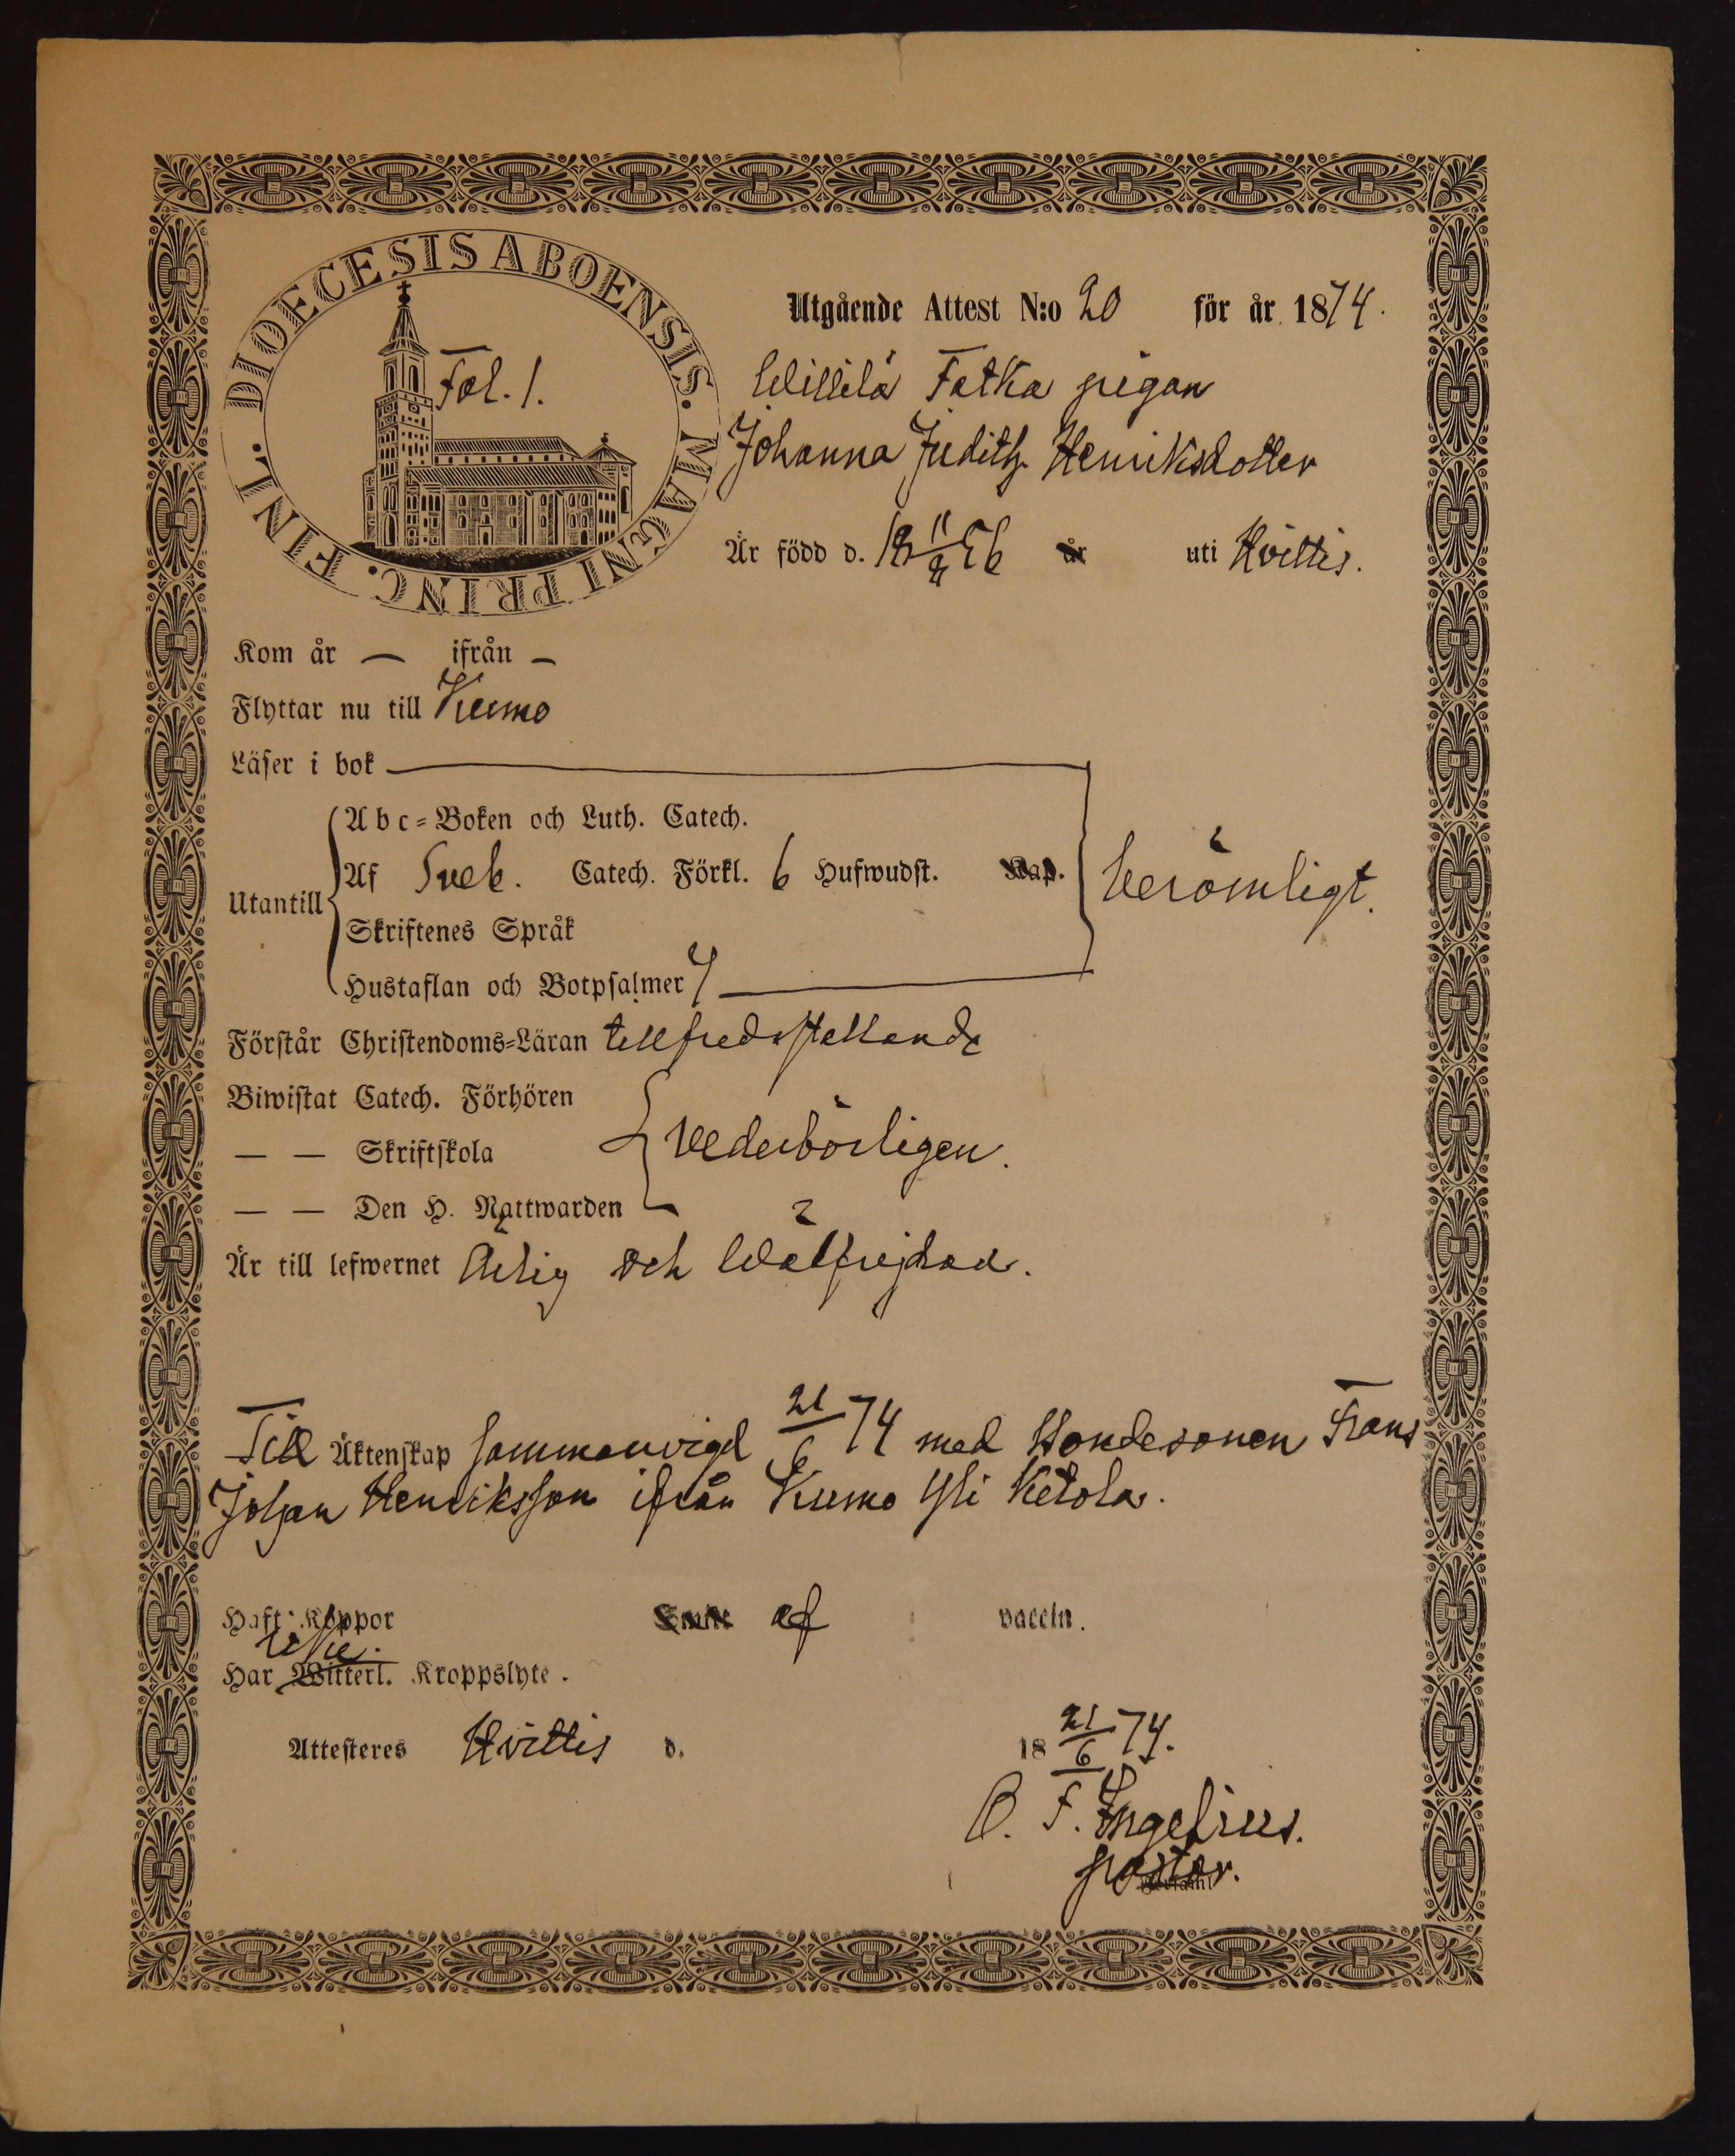 DIOECESIS ABOENSIS. MAGNI PRINC. FINL.
Fol. 1.
Utgående Attest N:o 20 för år 1874.
Willilä Fatka pigan
Johanna Judith Henriksdotter
Är född d. 18 11/9 56 år uti Hvittis.
Kom år — ifrån —
Flyttar nu till Kumo
Läser i bok
Utantill
Abc-Boken och Luth. Catech.
Af Sveb. Catech. Förkl. 6 Hufwudst. Kap.
Skriftenes Språk
Hustaflan och Botpsalmer 7
Berömligt.
Förstår Christendoms-Läran tillfredsställande
Biwistat Catech. Förhören
— — Skriftskola
— — Den H. Nattwarden
vederbörligen.
Är till lefwernet Ärlig och Wälfrejdad.
Till Äktenskap sammanvigd 21/6 74 med Bondesonen Frans
Johan Henriksson ifrån Kumo Yli Ketola.
Haft Koppor af vaccin.
icke
Har Witterl. Kroppslyte.
Attesteres Hvittis d. 18 21/6 74.
O. F. Ingelius.
pastor.